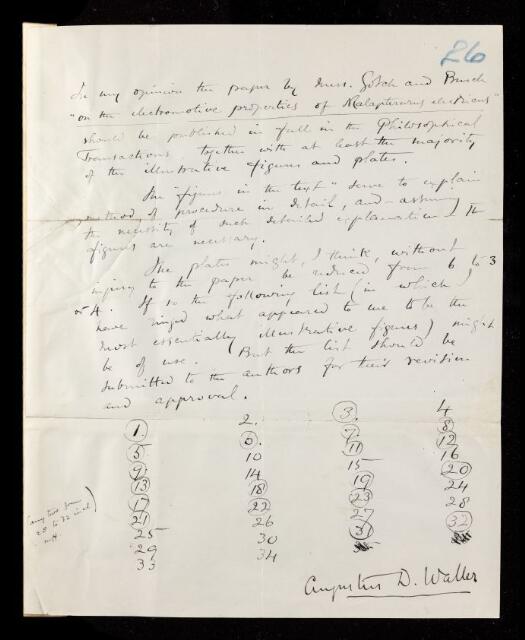 26
In my opinion the paper by Messrs. Gotch and Burch
"on the electromotive properties of Malapterurus electricus"
should be published in full in the Philosophical
Transactions together with at least the majority
of the illustrative figures and plates.
The "figures in the text" serve to explain
method of procedure in detail, and – assuming
the necessity of such detailed explanation – the
figures are necessary.
The plates might, I think, without
injury to the paper be reduced from 6 to 3
or 4. If so the following list (in which I
have ringed what appeared to me to be the
most essentially illustrative figures) might
be of use. But the list should be
submitted to the authors for their revision
and approval.
1. 2. 3. 4
5. 6. 7. 8
9. 10 11 12
13 14 15 16
17 18 19 20
21 22 23 24
25 26 27 28
29 30 31 32
33 34
(any two from
28 to 32 incl.
Augustus D. Waller